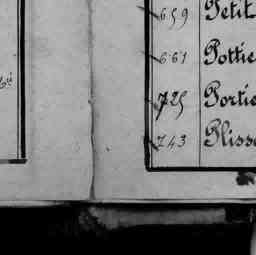 659 Petit
661 Pottie
725 Portie
743 Pliss